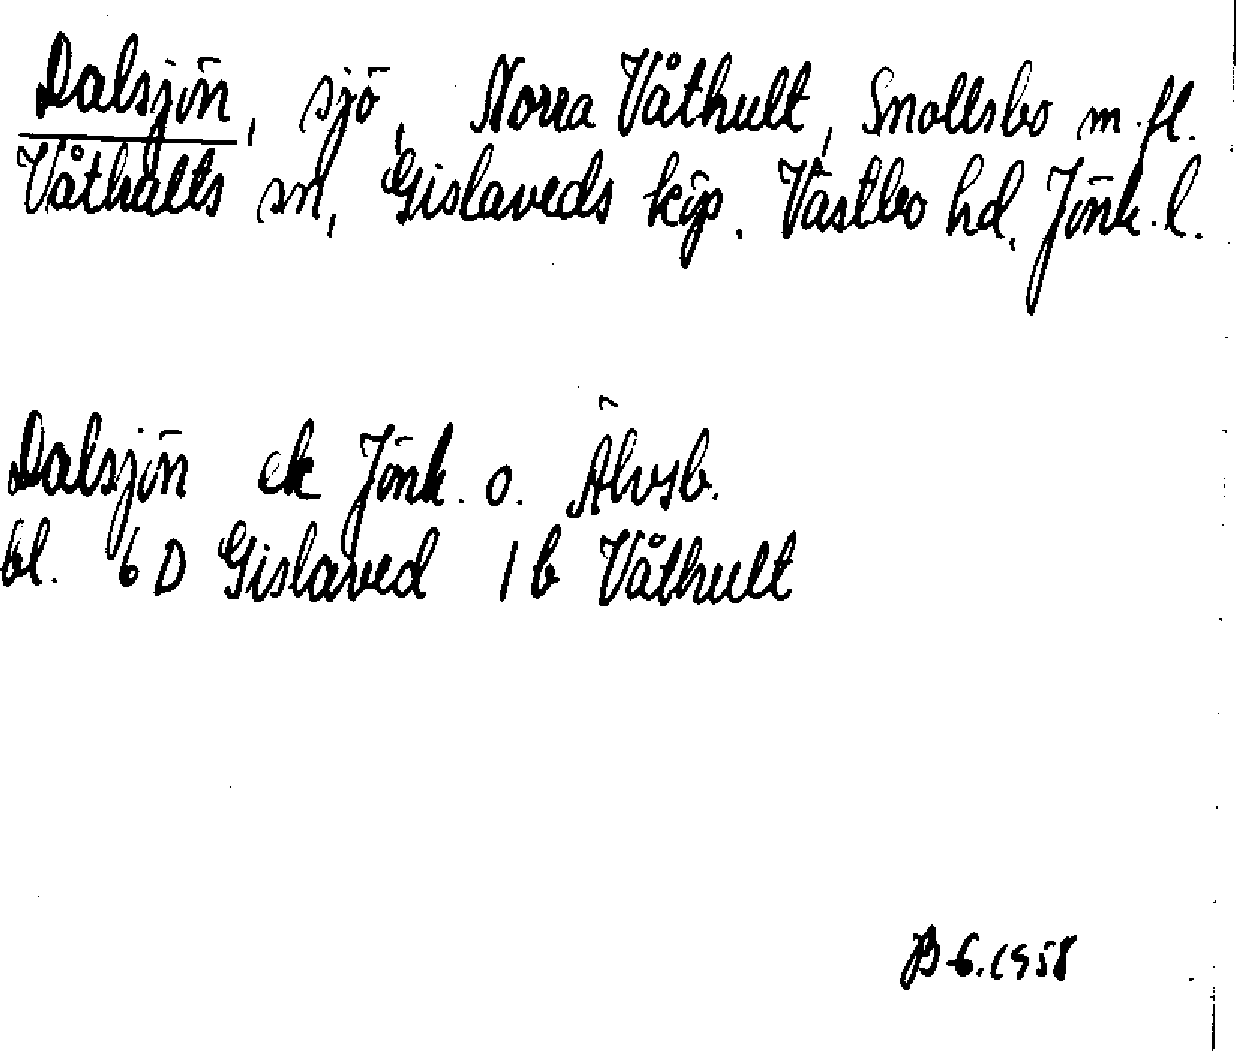 Dalsjön, sjö, Norra Våthult, Snollsbo m.fl.
Våthults sn, Gislaveds köp. Västbo hd, Jönk.l.
Dalsjön ek Jönk. o. Älvsb.
bl. 6D Gislaved 1b Våthult
B-6.1958